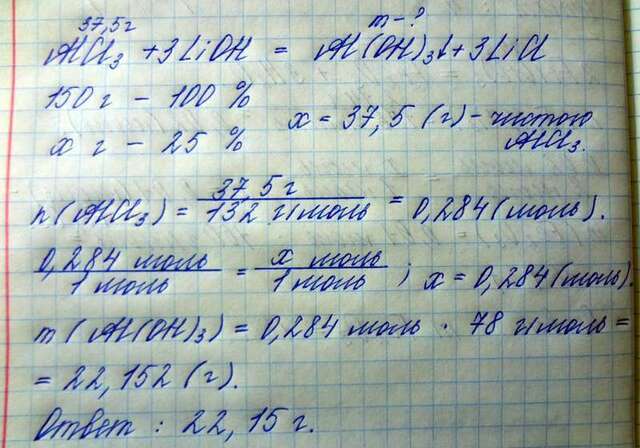 37,5г m-?
AlCl₃ + 3LiOH = Al(OH)₃↓ + 3LiCl
150 г - 100 %
x г - 25 %
x = 37,5 (г) - чистого AlCl₃.
n(AlCl₃) = 37,5 г / 132 г/моль = 0,284 (моль).
0,284 моль / 1 моль = x моль / 1 моль ; x = 0,284 (моль).
m(Al(OH)₃) = 0,284 моль · 78 г/моль =
= 22,152 (г).
Ответ : 22,15 г.